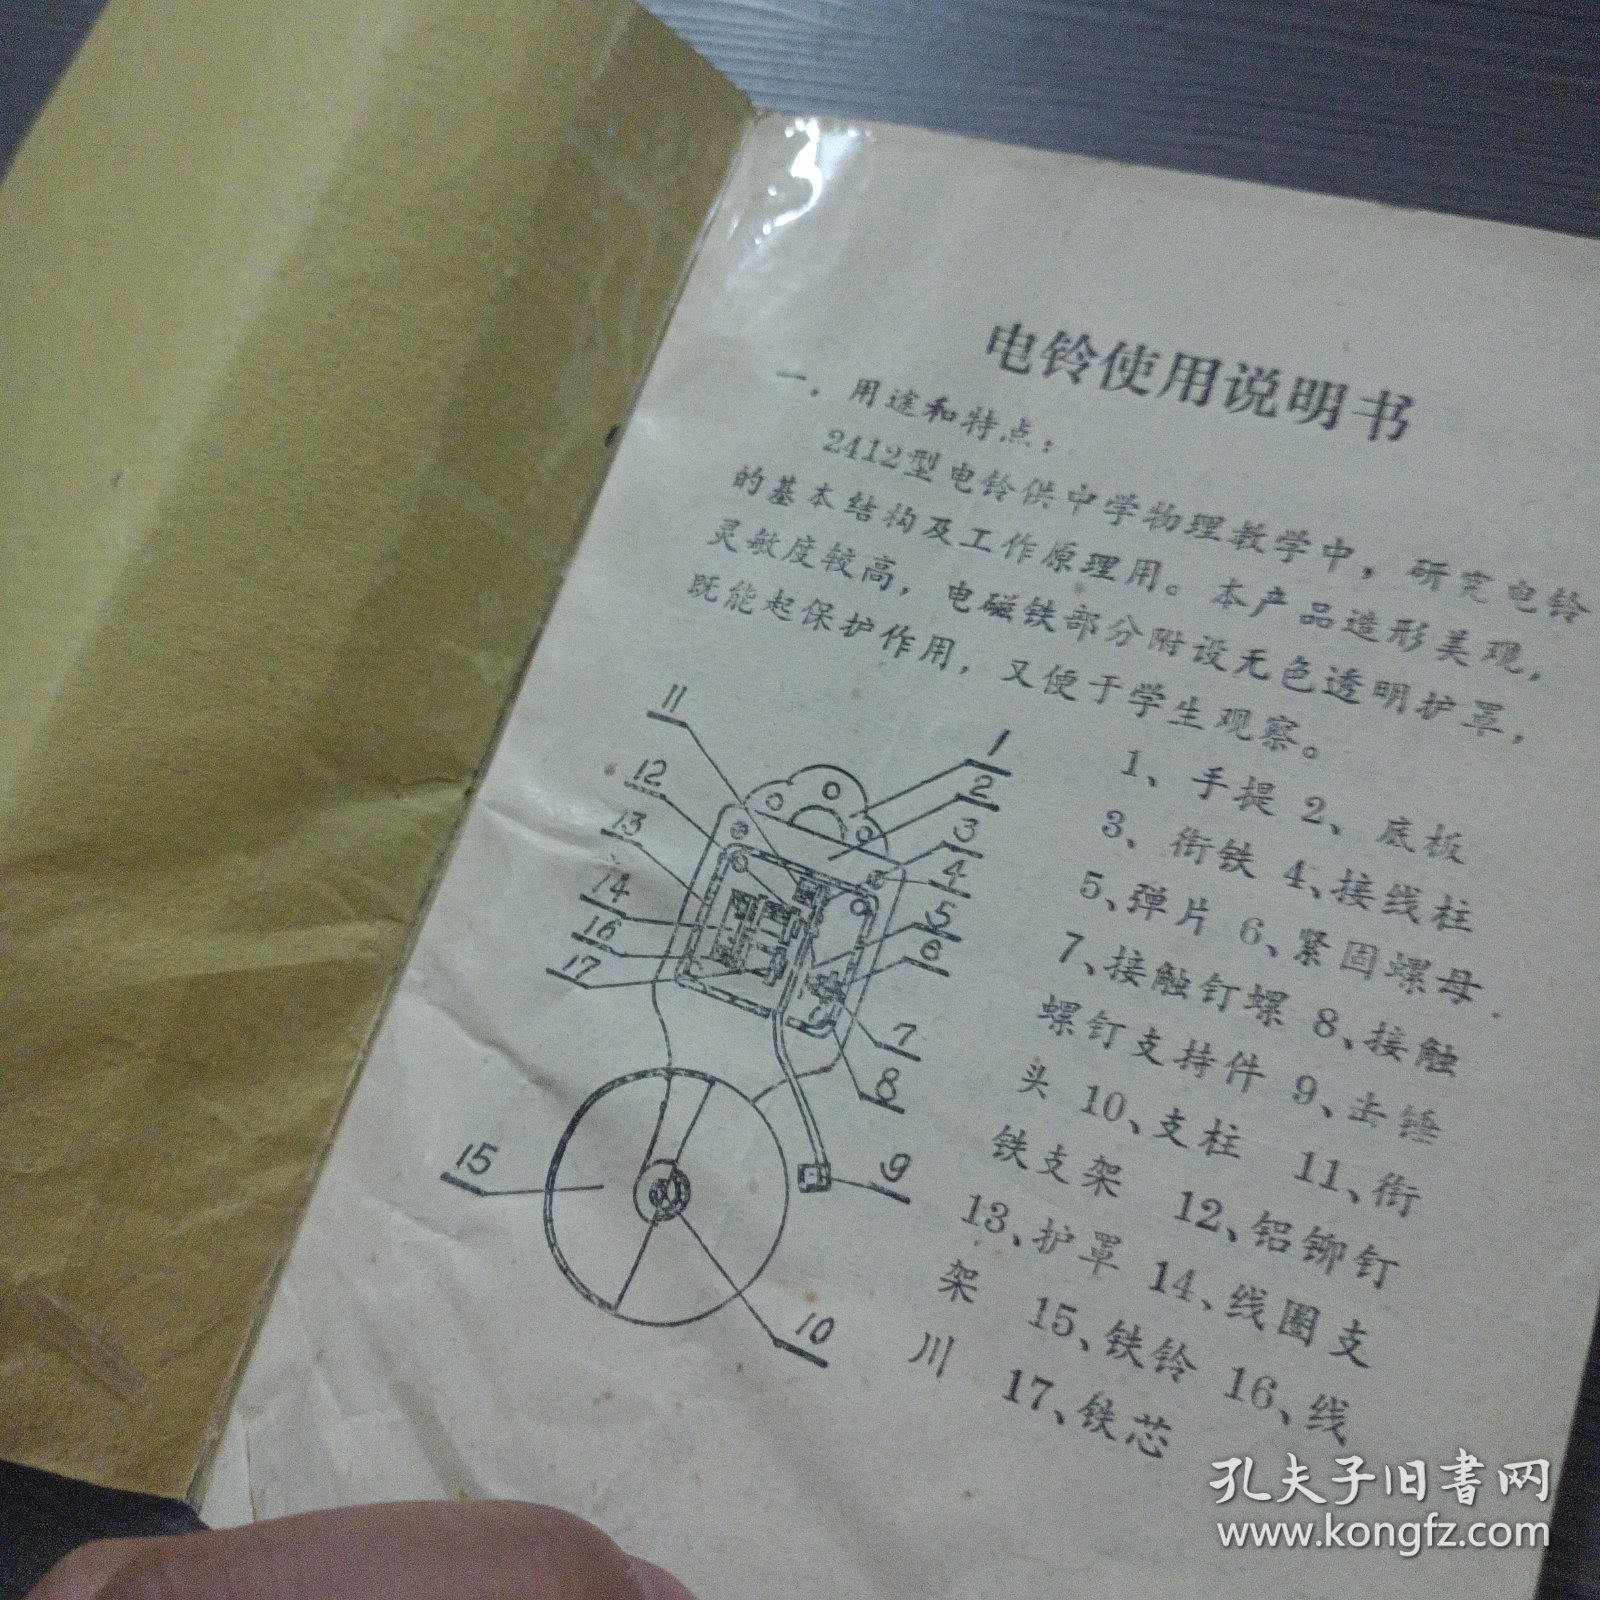 电铃使用说明书
一．用途和特点：
2412型电铃供中学物理教学中，研究电铃
的基本结构及工作原理用。本产品造形美观，
灵敏度较高，电磁铁部分附设无色透明护罩，
既能起保护作用，又便于学生观察。
1、手提 2、底板
3、衔铁 4、接线柱
5、弹片 6、紧固螺母
7、接触钉螺 8、接触
螺钉支持件 9、击锤
头 10、支柱 11、衔
铁支架 12、铝铆钉
13、护罩 14、线圈支
架 15、铁铃 16、线
川 17、铁芯
11
12
13
14
16
17
15
1
2
3
4
5
6
7
8
9
10
孔夫子旧书网
www.kongfz.com